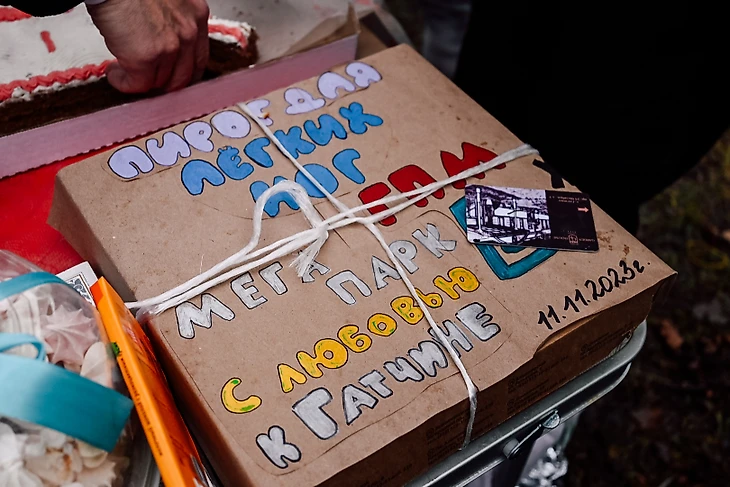 ПИРОГ ДЛЯ
ЛЁГКИХ
НОГ
ГПМ
МЕГА ПАРК
С ЛЮБОВЬЮ
К ГАТЧИНЕ
11.11.2023г.